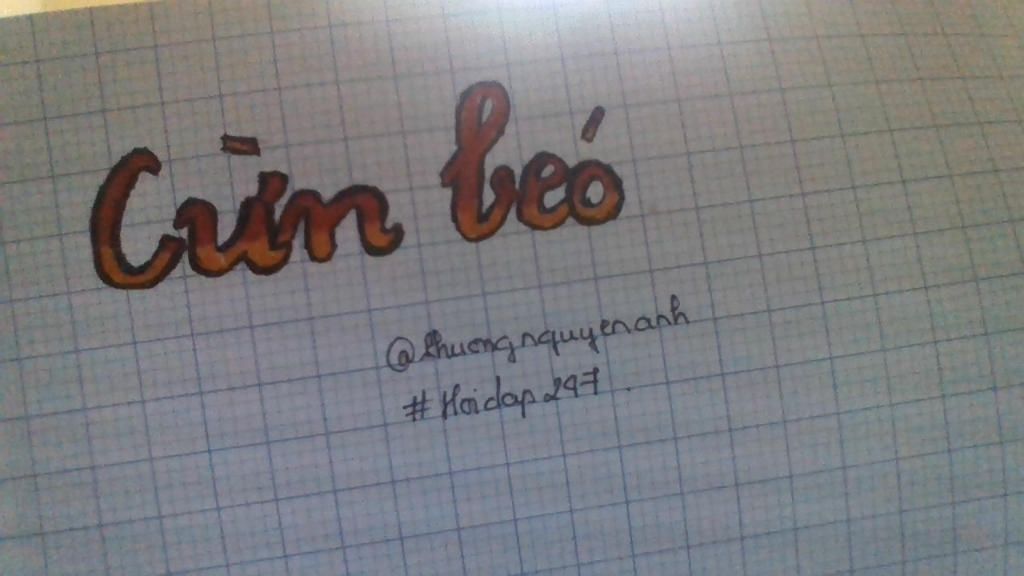 Cùn béo
@thuongnguyenanh
#Hoidap247